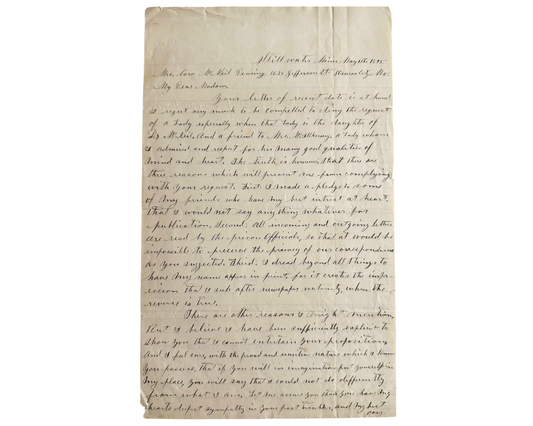 Stillwater Minn. May 1895
Mrs. Cora McNeil 1021 Jefferson St. Kansas City Mo.
My Dear Madam.
Your letter of recent date is at hand
I regret very much to be compelled to deny the request
of a Lady especially when that Lady is the daughter of
Dr McNeil. And a friend to Mrs. a Lady whom
I admired and respect for her many good qualities of
mind and heart. The truth is however that there are
three reasons which will prevent me from complying
with your request. First: I made a pledge to some
of my friends who have my best interest at heart,
that I would not say anything whatever for
publication. Second: All incoming and outgoing letters
are read by the prison Officials, so that it would be
impossible to preserve the privacy of our correspondence
as you suggested. Third: I dread beyond all things to
have my name appear in print, for it creates the impr-
ession that I seek after newspaper notoriety, when the
reverse is true.
There are other reasons I might mention,
But I believe I have been sufficiently explicit to
show you that I cannot entertain your proposition
And I feel sure, with the proud and sensitive nature which I know
you possess, that if you will in imagination put yourself in
my place, you will say that I could not do differently
from what I am. Let me assure you that you have my
hearts deepest sympathy in your past troubles, and my best